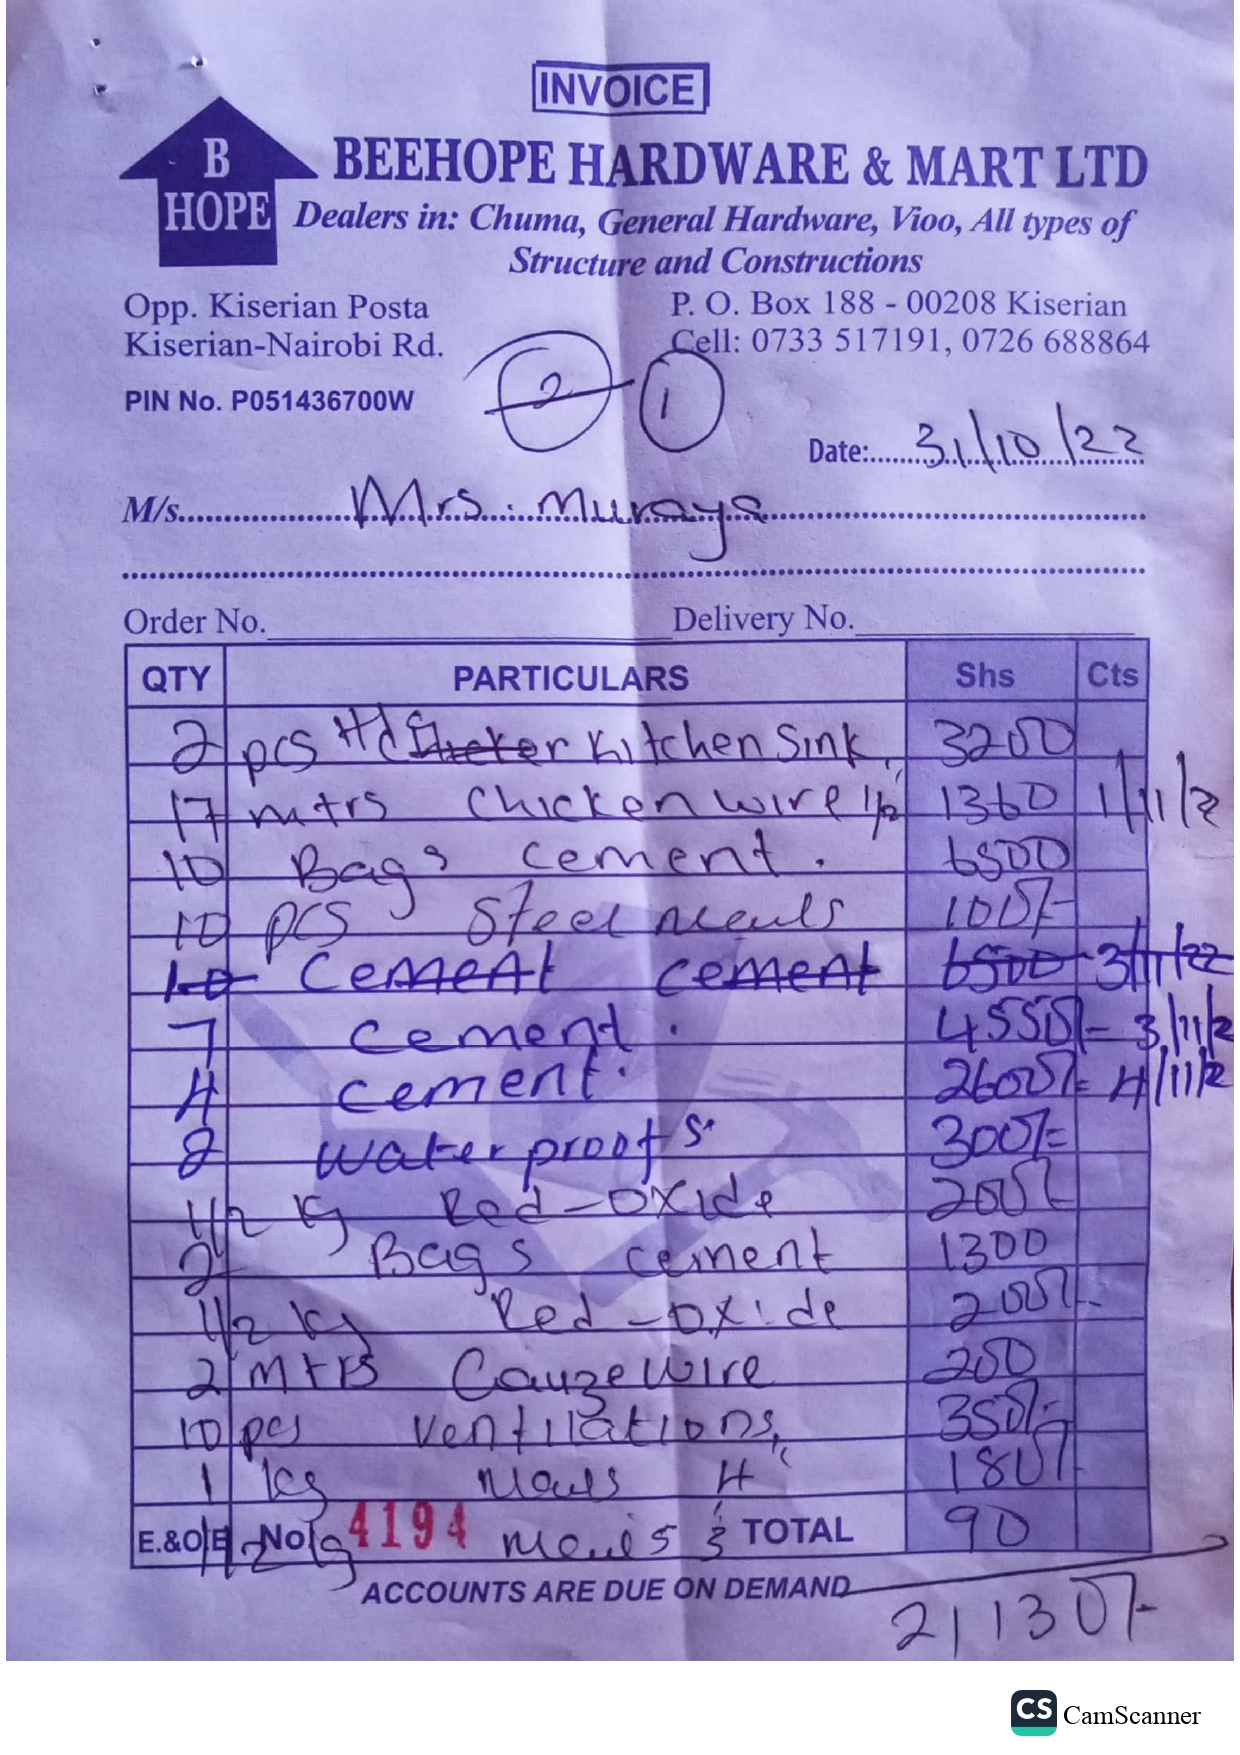 INVOICE
B
HOPE
BEEHOPE HARDWARE & MART LTD
Dealers in: Chuma, General Hardware, Vioo, All types of
Structure and Constructions
Opp. Kiserian Posta
P. O. Box 188 - 00208 Kiserian
Kiserian-Nairobi Rd.
Cell: 0733 517191, 0726 688864
PIN No. P051436700W
2 1
Date: 31/10/22
M/s. Mrs. Muraya
Order No. Delivery No.
QTY PARTICULARS Shs Cts
2 pcs Hd Kitchen Sink 3200
17 mtrs Chicken wire 1/2" 1360 1/11/2
10 Bags cement. 6500
10 pcs Steel neuls 100/-
10 cement cement 6500 3/11/22
7 cement. 4550/- 3/11/2
4 cement. 2600/= 4/11/2
2 waterproofs 300/=
1/2 kg Red-oxide 200/-
2 Bags cement 1300
1/2 kg Red-oxide 200/-
2 mtrs Gauze wire 200
10 pcs ventilations 350/-
1 kg neuls 4" 180/-
E.&O.E No. 4194 1/2 kg neuls 3 TOTAL 90
ACCOUNTS ARE DUE ON DEMAND
21130/-
CS CamScanner